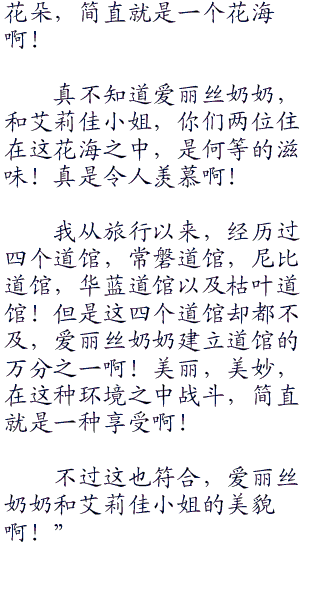 花朵，简直就是一个花海
啊！
真不知道爱丽丝奶奶，
和艾莉佳小姐，你们两位住
在这花海之中，是何等的滋
味！真是令人羡慕啊！
我从旅行以来，经历过
四个道馆，常磐道馆，尼比
道馆，华蓝道馆以及枯叶道
馆！但是这四个道馆却都不
及，爱丽丝奶奶建立道馆的
万分之一啊！美丽，美妙，
在这种环境之中战斗，简直
就是一种享受啊！
不过这也符合，爱丽丝
奶奶和艾莉佳小姐的美貌
啊！”